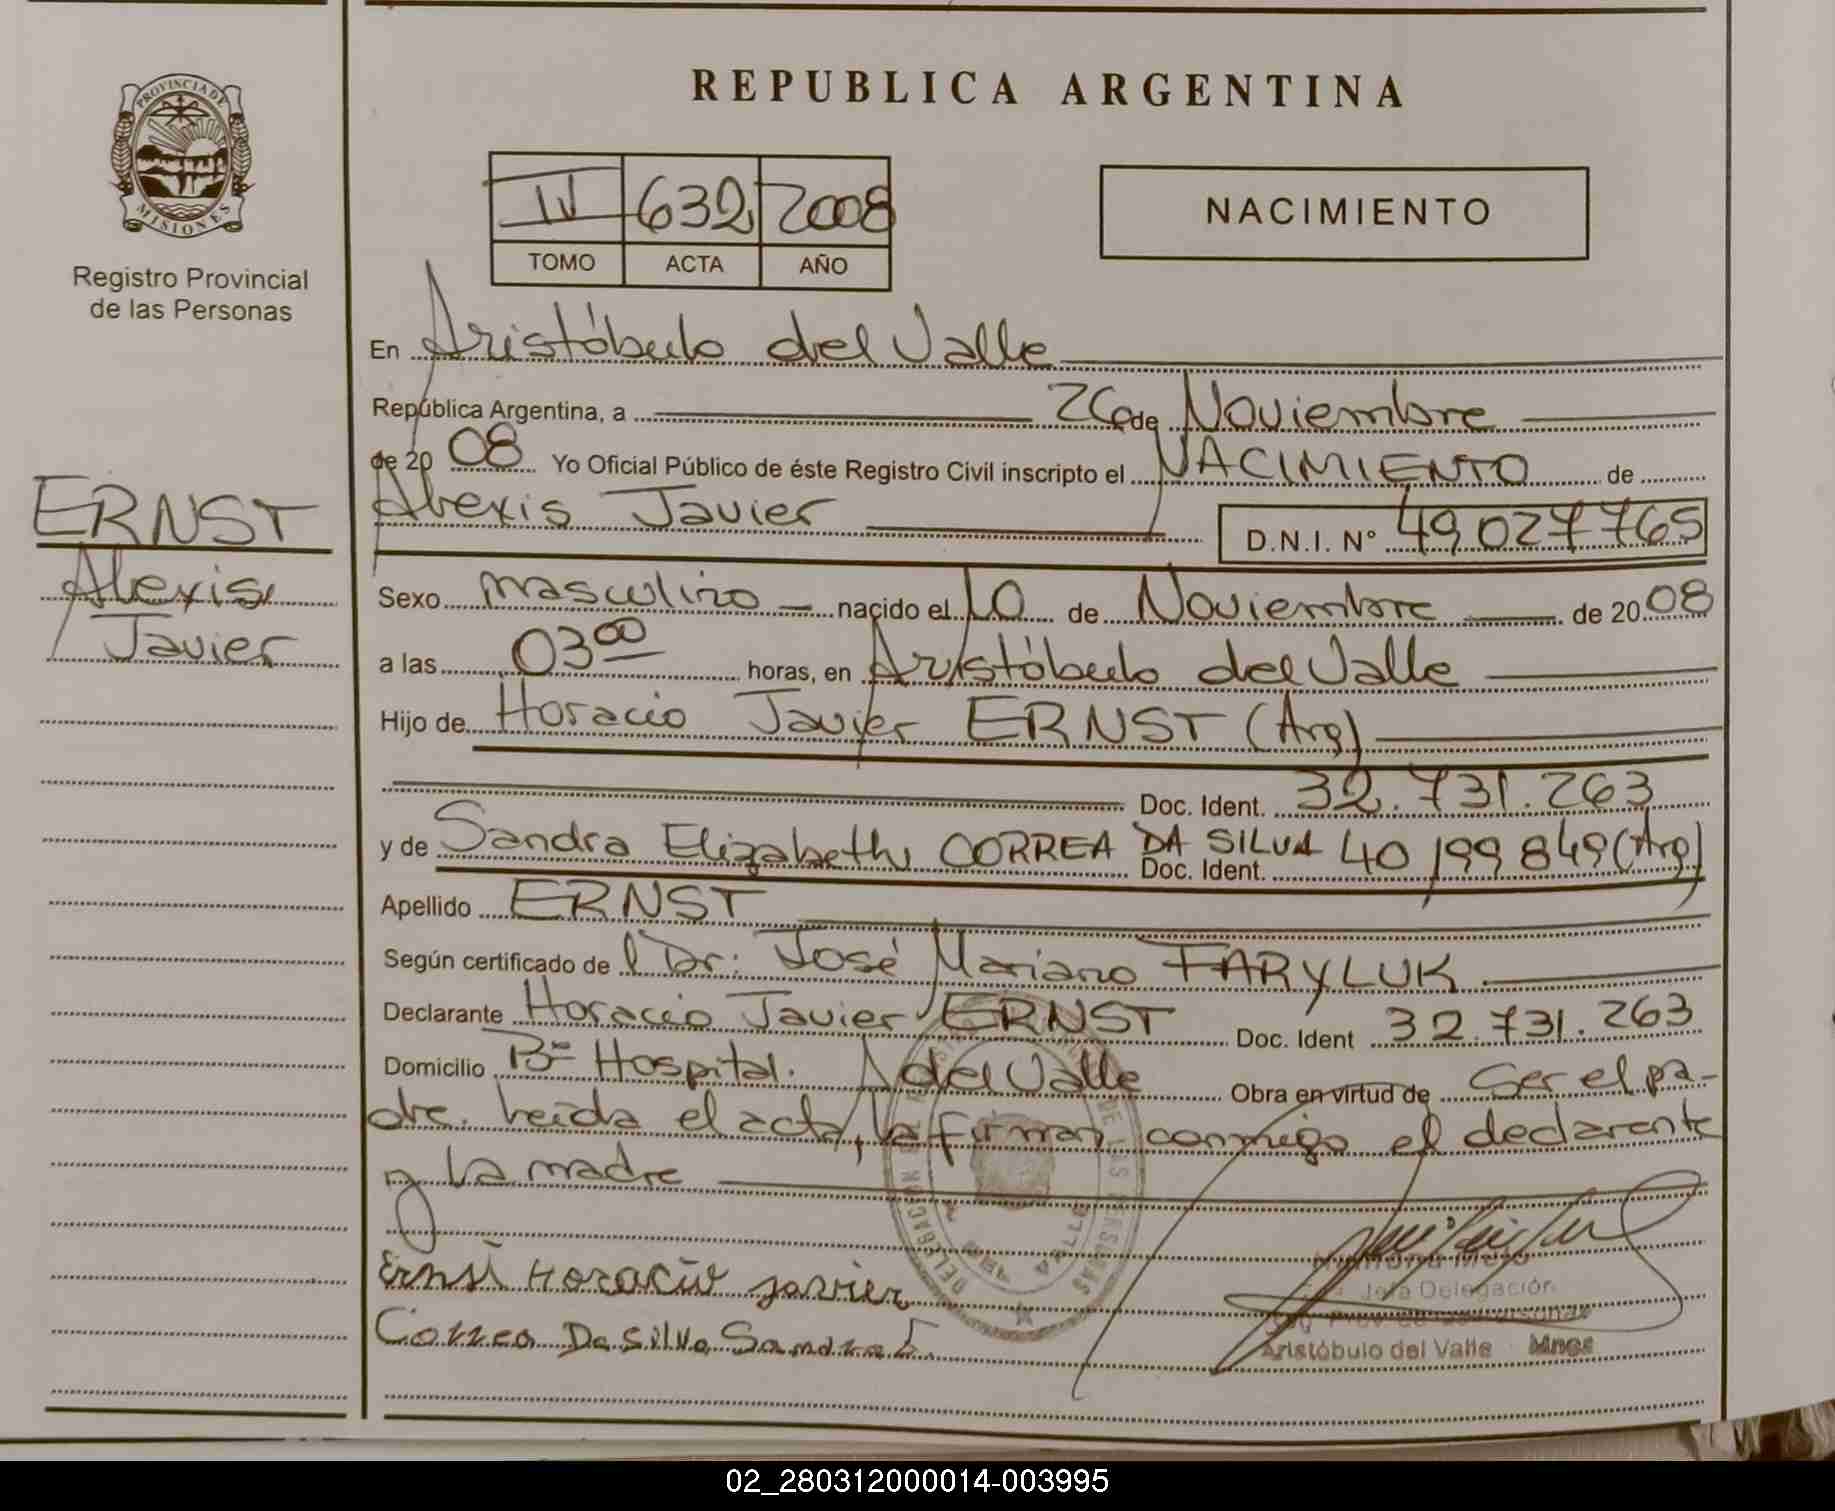 PROVINCIA DE
MISIONES
Registro Provincial
de las Personas
ERNST
Alexis
Javier
REPUBLICA ARGENTINA
IV 632 2008
TOMO ACTA AÑO
NACIMIENTO
En Aristóbulo del Valle
República Argentina, a 26 de Noviembre
de 2008 Yo Oficial Público de éste Registro Civil inscripto el NACIMIENTO de
Alexis Javier D.N.I. N° 49027765
Sexo masculino nacido el 10 de Noviembre de 2008
a las 03 00 horas, en Aristóbulo del Valle
Hijo de Horacio Javier ERNST (Arg)
Doc. Ident. 32.731.263
y de Sandra Elizabeth CORREA DA SILVA Doc. Ident. 40 199 849 (Arg)
Apellido ERNST
Según certificado de l Dr. José Mariano FARYLUK
Declarante Horacio Javier ERNST Doc. Ident 32.731.263
Domicilio Bº Hospital. A del Valle Obra en virtud de ser el pa-
dre. Leída el acta, la firman conmigo el declarante
y la madre
Ernst Horacio javier
Correa Da Silva Sandra E.
Jefa Delegación
Aristóbulo del Valle Mnes
02_280312000014-003995